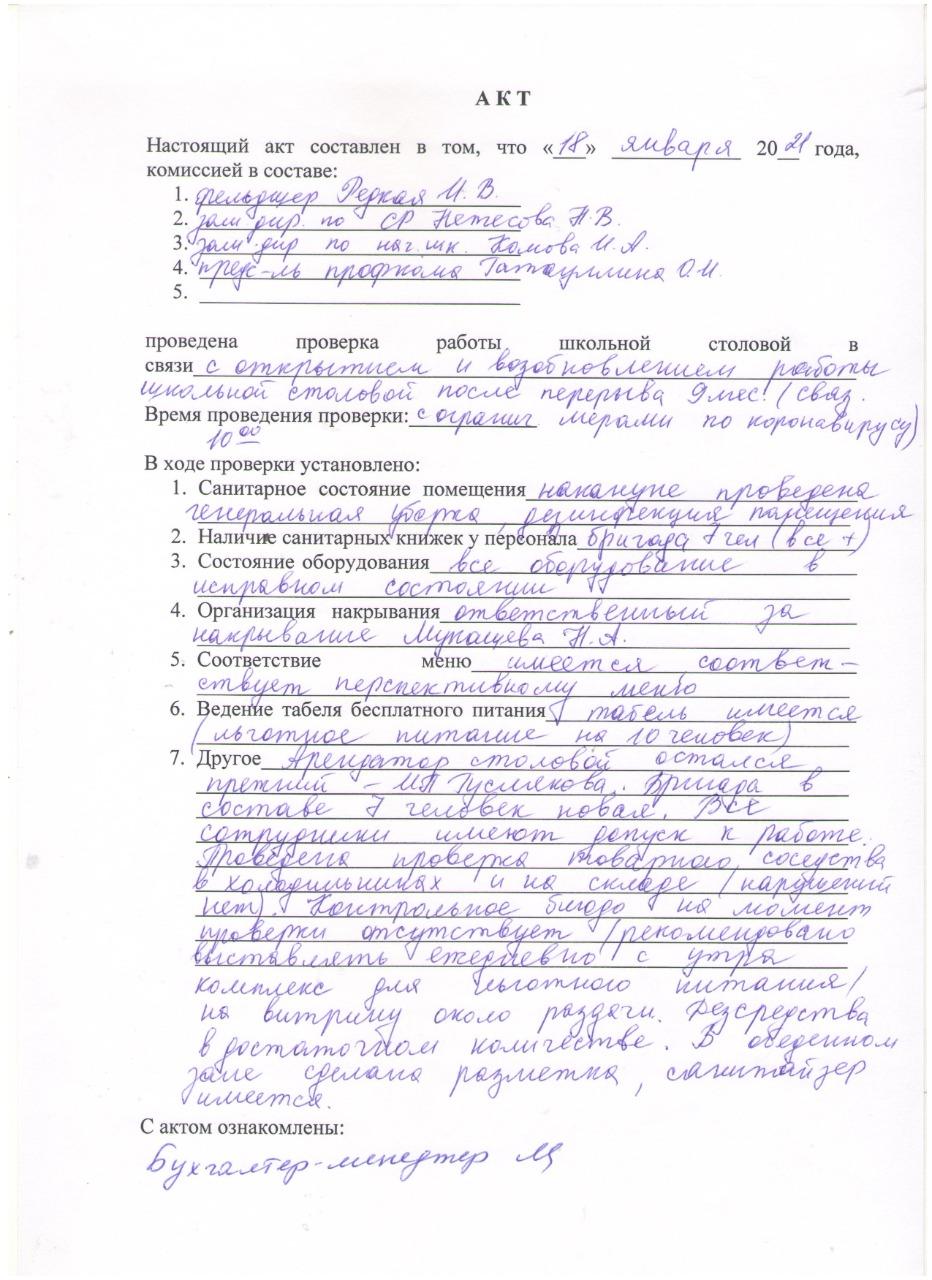 АКТ
Настоящий акт составлен в том, что «18» января 2021 года,
комиссией в составе:
1. фельдшер Редкая И.В.
2. зам дир. по СР Нетесова Н.В.
3. зам дир по нач.шк. Комова И.А.
4. предс-ль профкома Гатауллина О.И.
5.
проведена проверка работы школьной столовой в
связи с открытием и возобновлением работы
школьной столовой после перерыва 9 мес. (связ.
Время проведения проверки: с огранич. мерами по коронавирусу)
10 00
В ходе проверки установлено:
1. Санитарное состояние помещения накануне проведена
генеральная уборка, дезинфекция помещения
2. Наличие санитарных книжек у персонала бригада 7 чел (все +)
3. Состояние оборудования все оборудование в
исправном состоянии
4. Организация накрывания ответственный за
накрывание Мупащева Н.А.
5. Соответствие меню имеется соответ-
ствует перспективному меню
6. Ведение табеля бесплатного питания табель имеется
(льготное питание на 10 человек)
7. Другое Арендатор столовой остался
прежний – ИП Гуслякова. Бригада в
составе 7 человек новая. Все
сотрудники имеют допуск к работе.
Проведена проверка товарного соседства
в холодильниках и на складе (нарушений
нет). Контрольное блюдо на момент
проверки отсутствует (рекомендовано
выставлять ежедневно с утра
комплекс для льготного питания)
на витрину около раздачи. Дезсредства
в достаточном количестве. В обеденном
зале сделана разметка, санитайзер
имеется.
С актом ознакомлены:
Бухгалтер-менеджер